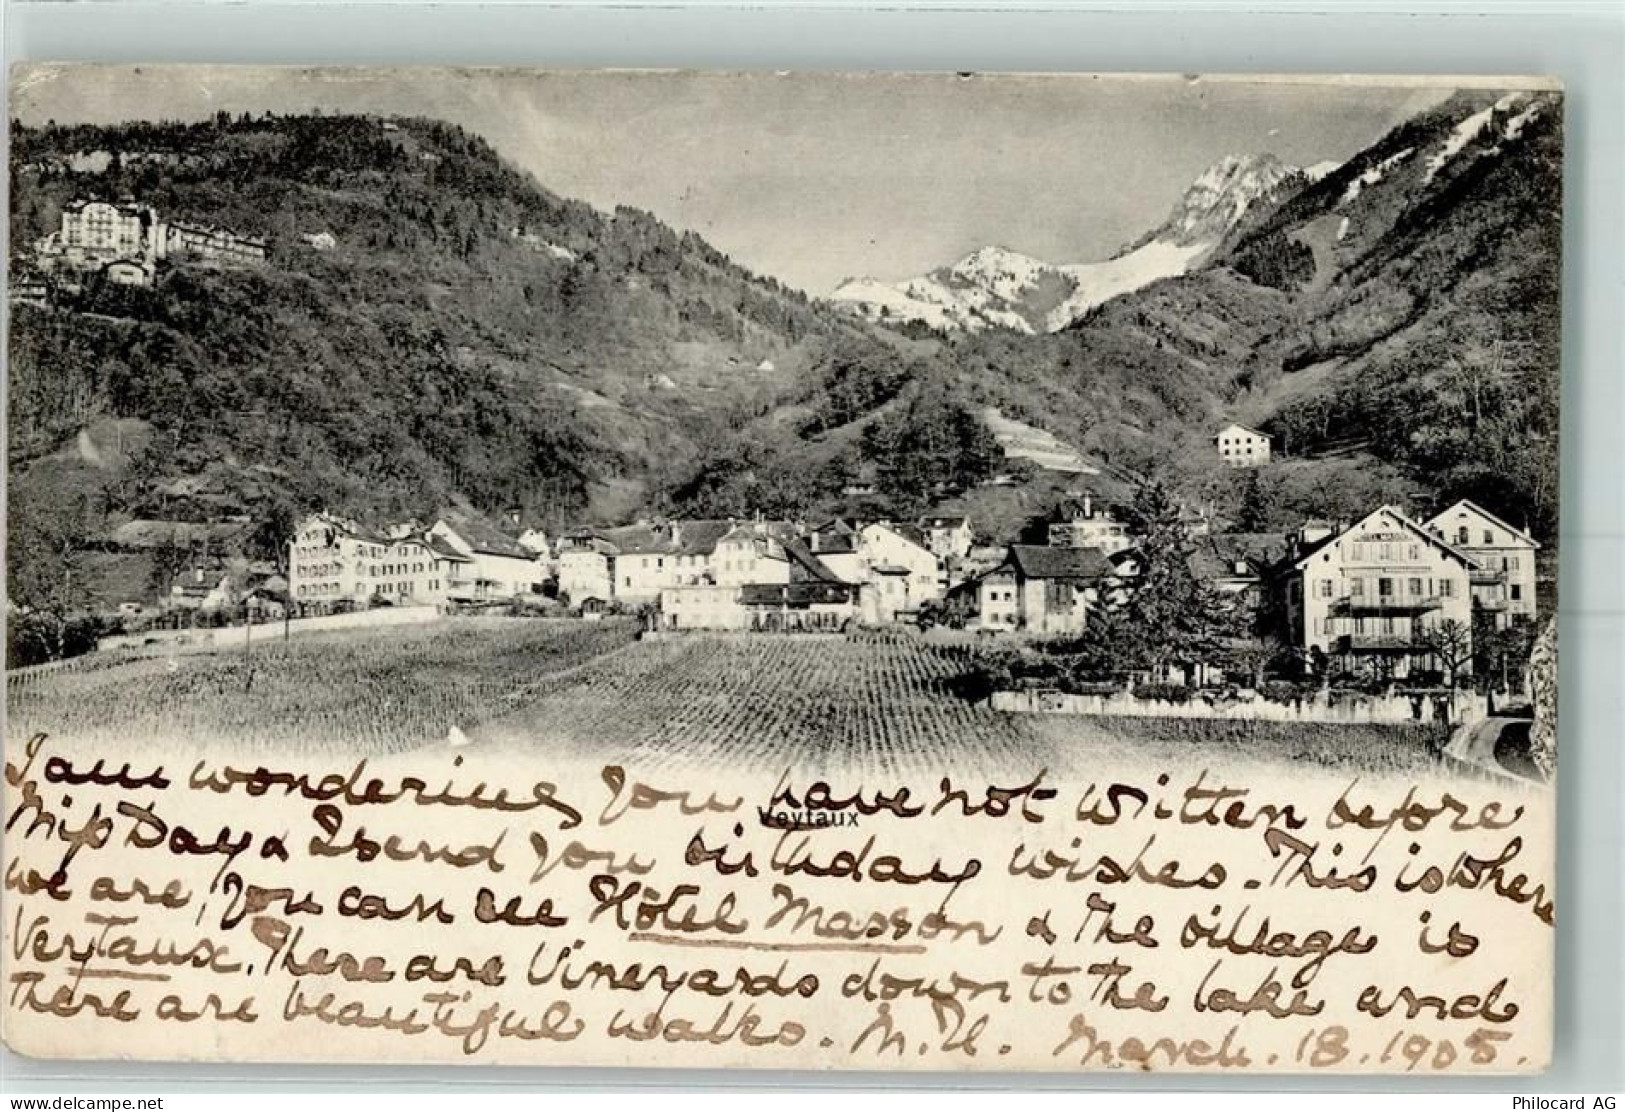 HOTEL MASSON
Veytaux
I am wondering you have not written before
Miss Day & I send you birthday wishes. This is where
we are, you can see Hôtel Masson & the village is
Veytaux. There are Vineyards down to the lake and
there are beautiful walks. M. H. March. 18. 1905.
www.delcampe.net
Philocard AG